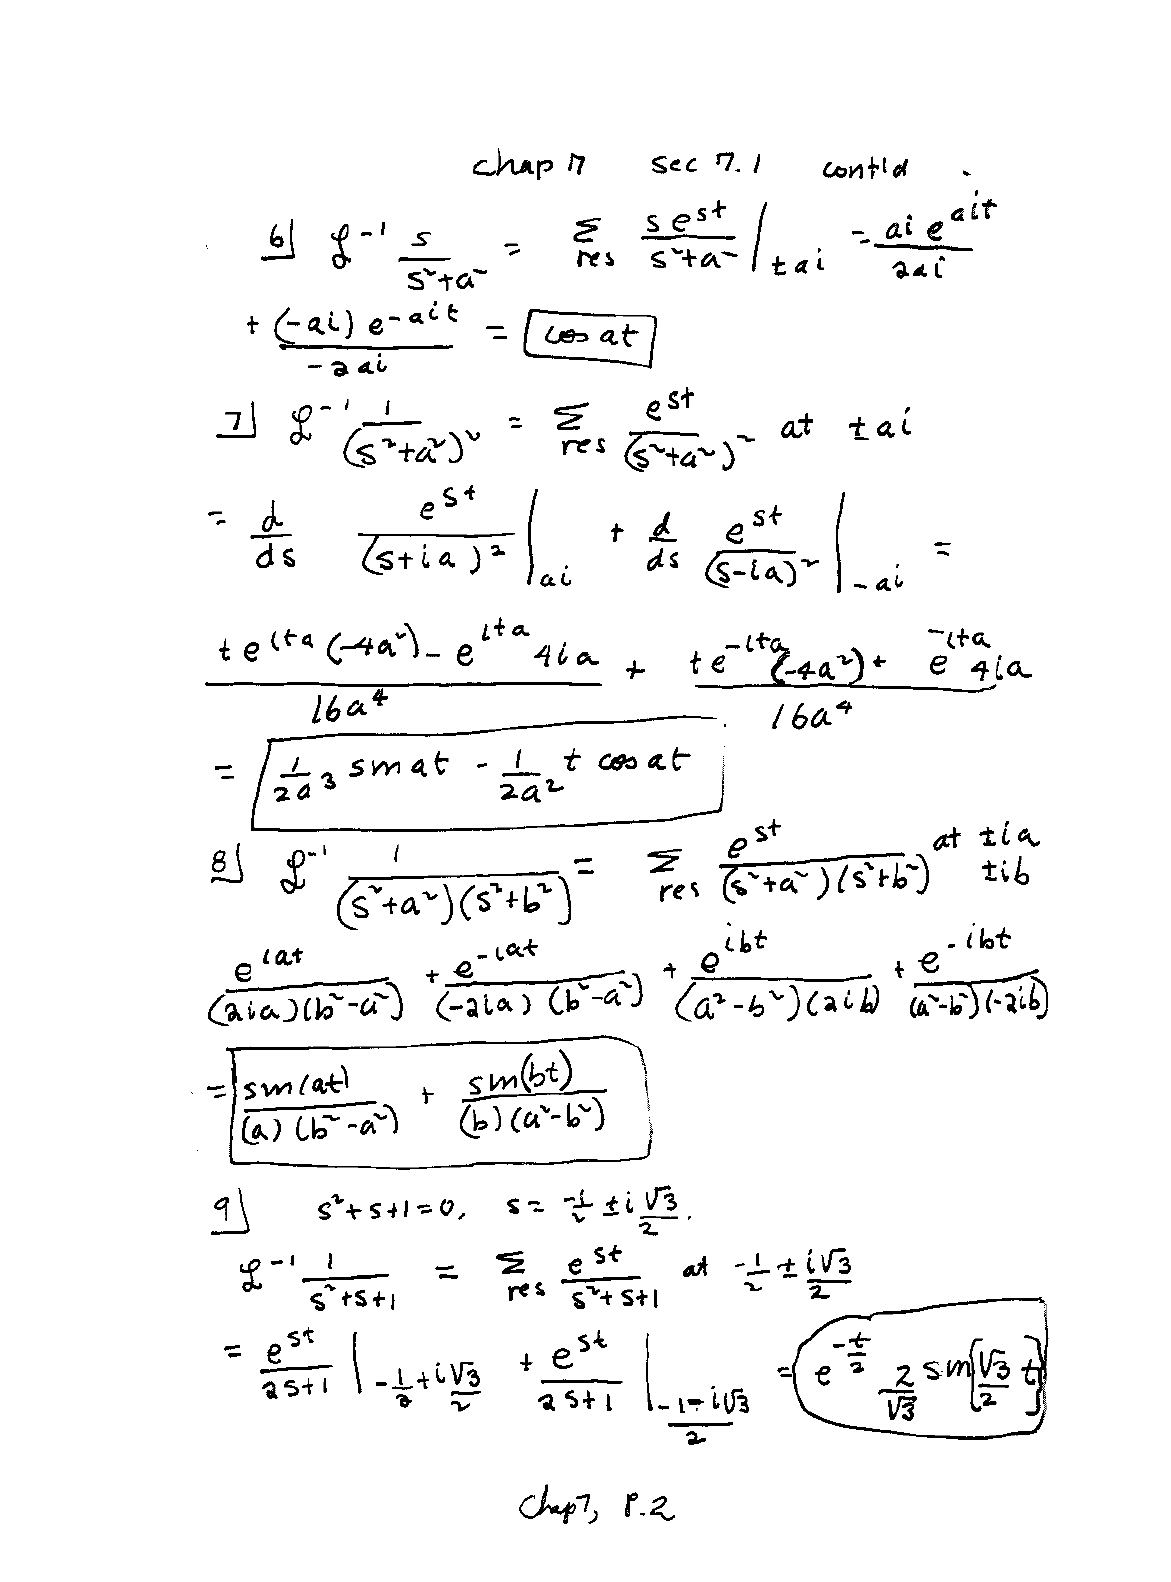 chap 7 sec 7.1 cont'd
6] ℒ⁻¹ s/(s²+a²) = Σ res se^{st}/(s²+a²) |_{±ai} = ai e^{ait}/(2ai)
+ (-ai) e^{-ait}/(-2ai) = cos at
7] ℒ⁻¹ 1/(s²+a²)² = Σ res e^{st}/(s²+a²)² at ±ai
= d/ds e^{st}/(s+ia)² |_{ai} + d/ds e^{st}/(s-ia)² |_{-ai} =
(te^{ita}(-4a²) - e^{ita} 4ia)/(16a⁴) + (te^{-ita}(-4a²) + e^{-ita} 4ia)/(16a⁴)
= 1/(2a³) sin at - 1/(2a²) t cos at
8] ℒ⁻¹ 1/((s²+a²)(s²+b²)) = Σ res e^{st}/((s²+a²)(s²+b²)) at ±ia ±ib
e^{iat}/((2ia)(b²-a²)) + e^{-iat}/((-2ia)(b²-a²)) + e^{ibt}/((a²-b²)(2ib)) + e^{-ibt}/((a²-b²)(-2ib))
= sin(at)/((a)(b²-a²)) + sin(bt)/((b)(a²-b²))
9] s²+s+1=0, s = -1/2 ± i √3/2.
ℒ⁻¹ 1/(s²+s+1) = Σ res e^{st}/(s²+s+1) at -1/2 ± i√3/2
= e^{st}/(2s+1) |_{-1/2+i√3/2} + e^{st}/(2s+1) |_{(-1-i√3)/2} = e^{-t/2} 2/√3 sin[√3/2 t]
Chap7, P.2